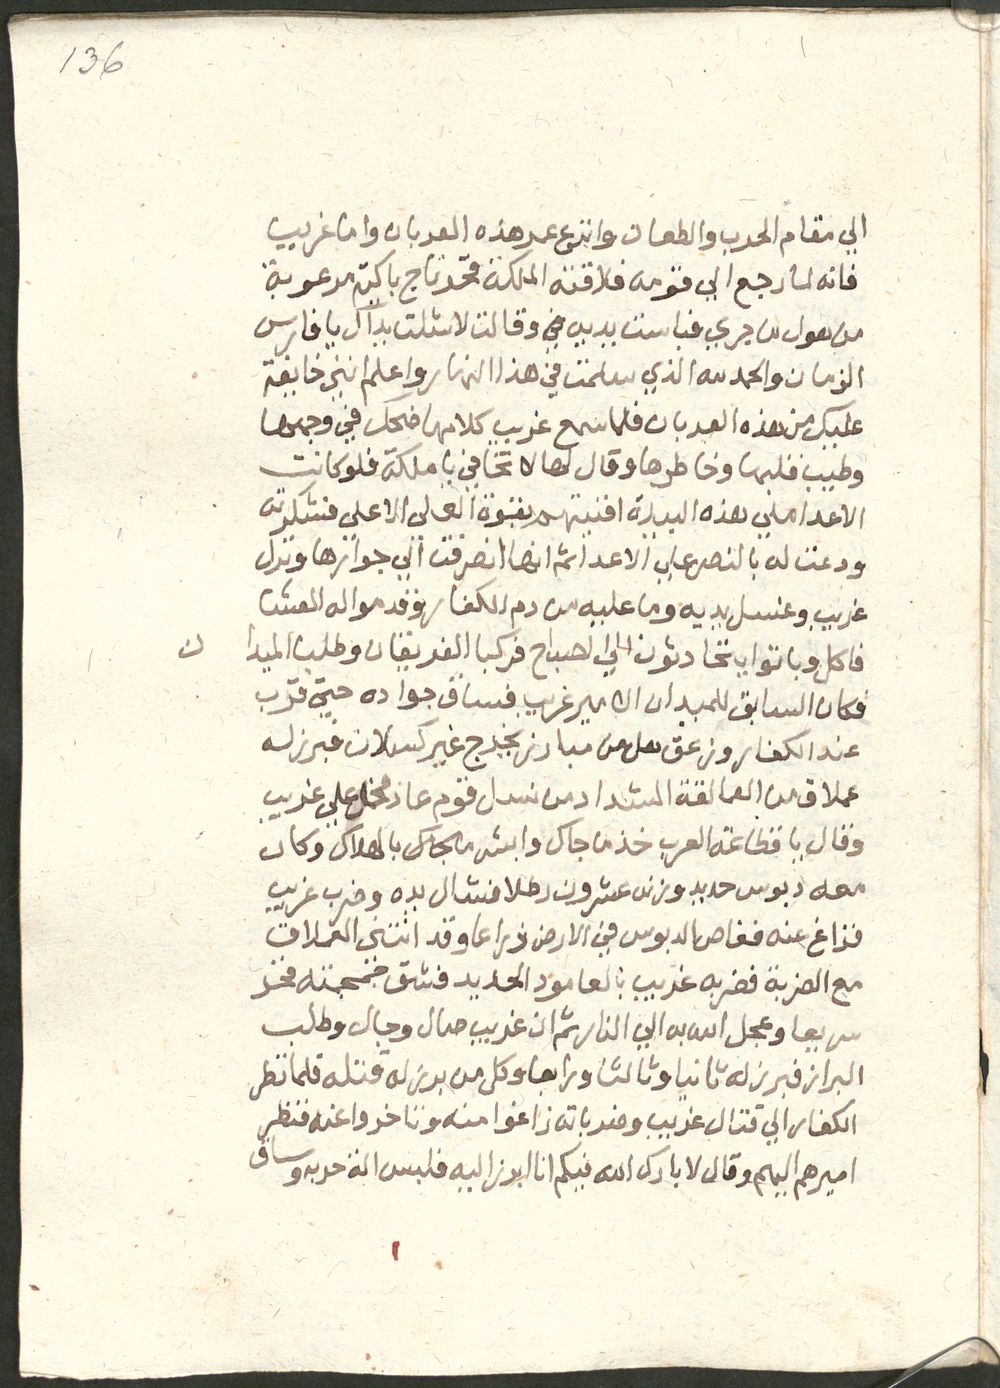 136
الي مقام الحرب والطعان وانزع عمر هذه العربان واما غريب
فانه لما رجع الي قومه فلاقته الملكة فخر تاج باكية مرعوبة
من هول ما جري فباست يديه وقالت لا شلت يداك يا فارس
الزمان والحمد لله الذي سلمت في هذا النهار واعلم انني خايفة
عليك من هذه العربان فلما سمع غريب كلامها ضحك في وجهها
وطيب قلبها وخاطرها وقال لها لا تخافي يا ملكة فلو كانت
الاعدا ملي هذه البيدة افنيتهم بقوة العلي الاعلي فشكرته
ودعت له بالنصر علي الاعدا ثم انها انصرفت الي جوارها ونزل
غريب وغسل يديه وما عليه من دم الكفار وقدموا له العشا
فاكل وباتوا يتحادثون الي الصباح فركبا الفريقان وطلبا الميدا ن
فكان السابق للميدان الامير غريب فساق جواده حتي قرب
عند الكفار وزعق هل من مبارز يخرج غير كسلان فبرز له
عملاق من العمالقة الشداد من نسل قوم عاد فحمل علي غريب
وقال يا قطاعة العرب خذ ما جاك وابشر بالهلاك وكان
معه دبوس حديد وزنه عشرون رطلا فشال يده وضرب غريب
فزاغ عنه فغاص الدبوس في الارض ذراعا وقد انثني العملاق
مع الضربة فضربه غريب بالعامود الحديد فشق جمجمته فخر
سريعا وعجل الله به الي النار ثم ان غريب صال وجال وطلب
البراز فبرز له ثانيا وثالثا ورابعا وكل من برز له قتله فلما نظر
الكفار الي قتال غريب وضرباته زاغوا منه وتاخروا عنه فنظر
اميرهم اليهم وقال لا بارك الله فيكم انا ابرز اليه فلبس الة حربه وساق